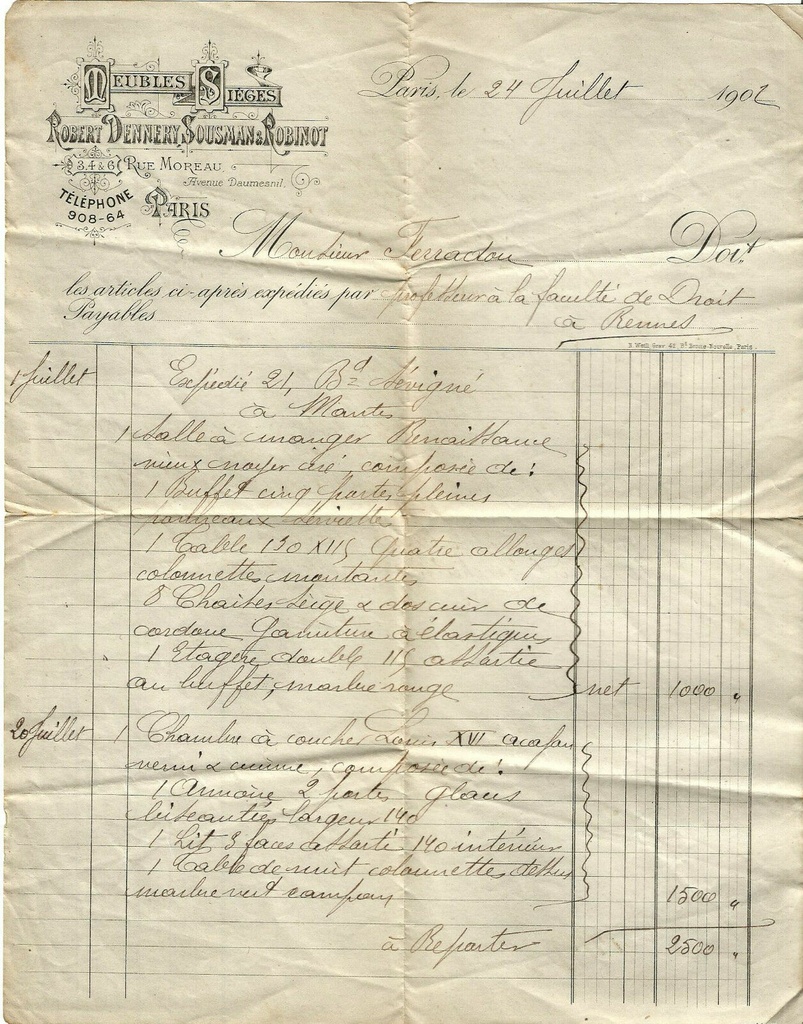 MEUBLES SIÈGES
ROBERT DENNERY, SOUSMAN & ROBINOT
3.4 & 6 RUE MOREAU.
Avenue Daumesnil.
TÉLÉPHONE
908-64
PARIS
Paris, le 24 Juillet 1902
Monsieur Ferradou Doit
les articles ci-après expédiés par professeur à la faculté de Droit
Payables à Rennes
1 Juillet Expédié 21, Bd Sévigné
à
1 Salle à manger Renaissance
vieux noyer ciré, composée de :
1 Buffet cinq portes pleines
panneaux serviette
1 Table 130 X 115 quatre allonges
colonnettes montantes
8 Chaises siège & dos cuir de
cordoue garniture à élastiques
1 Etagère double 115 assortie
au buffet, marbre rouge net 1000 "
20 Juillet 1 Chambre à coucher Louis XVI acajou
verni & cuivre, composée de :
1 Armoire 2 portes glaces
biseautées largeur 140
1 Lit 3 faces assorti 140 intérieur
1 Table de nuit colonnettes dessus
marbre vert campan 1500 "
à Reporter 2500 "